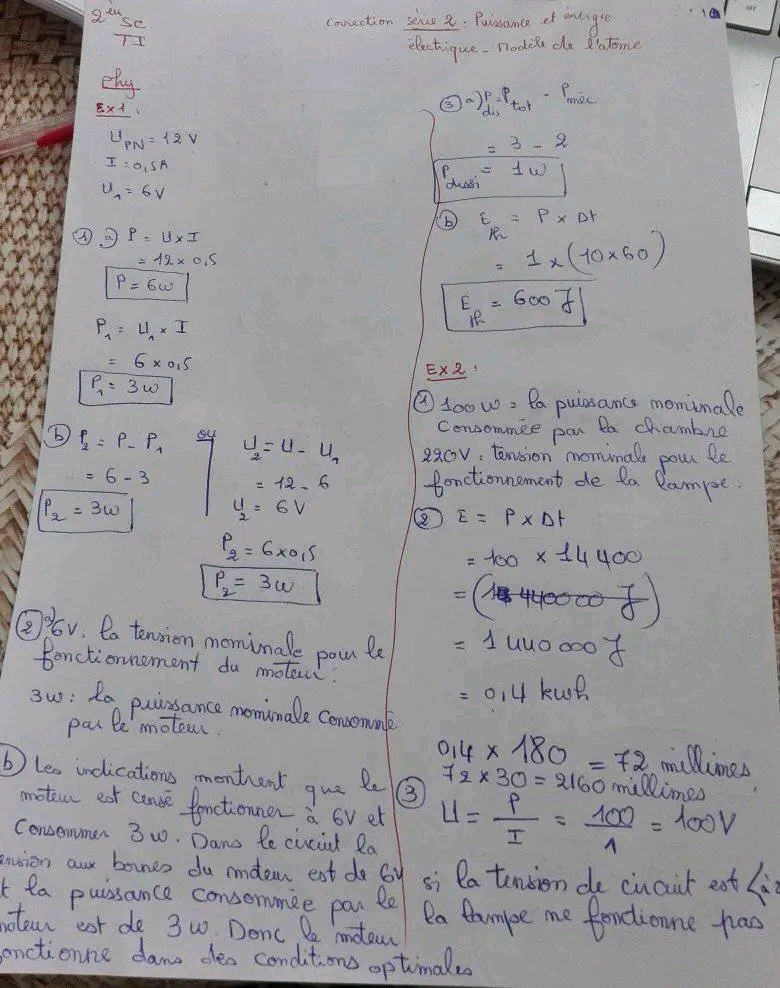 2ème SC
TI
Correction série 2 : Puissance et énergie
électrique - Modèle de l'atome
Phy
Ex 1 :
U_PN = 12 V
I = 0,5A
U₁ = 6 V
① a) P = U x I
= 12 x 0,5
P = 6w
P₁ = U₁ x I
= 6 x 0,5
P₁ = 3w
b) P₂ = P - P₁
= 6 - 3
P₂ = 3w
ou
U₂ = U - U₁
= 12 - 6
U₂ = 6 V
P₂ = 6 x 0,5
P₂ = 3w
② a) 6V : la tension nominale pour le
fonctionnement du moteur.
3w : la puissance nominale consommé
par le moteur.
b) Les indications montrent que le
moteur est censé fonctionner à 6V et
consommer 3w. Dans le circuit la
ension aux bornes du moteur est de 6V
t la puissance consommée par le
moteur est de 3w. Donc le moteur
onctionne dans des conditions optimales
③ a) P_dis = P_tot - P_méc
= 3 - 2
P_dissi = 1w
b) E_th = P x Δt
= 1 x (10x60)
E_th = 600 J
Ex 2 :
① 100 w = la puissance nominale
consommée par la chambre
220V : tension nominale pour le
fonctionnement de la lampe.
② E = P x Δt
= 100 x 14 400
= 1 440 000 J
= 0,4 kwh
0,4 x 180 = 72 millimes
72 x 30 = 2160 millimes
③ U = P/I = 100/1 = 100V
si la tension de circuit est < à
la lampe ne fonctionne pas